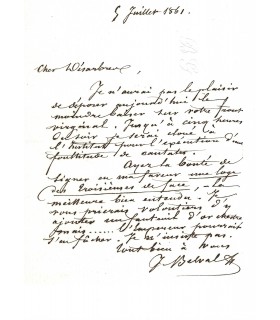 5 Juillet 1861.
Cher Désarbres
Je n'aurai pas le plaisir
de déposer aujourd'hui le
moindre baiser sur votre front
virginal, jusqu'à cinq heures
du soir je serai cloué à
l'Institut pour l'exécution d'une
foultitude de cantates.
Ayez la bonté de
signer en ma faveur une loge
des troisièmes de face, la
meilleure bien entendu. Je
vous prierais volontiers d'y
ajouter un fauteuil d'orchestre
mais...... L'Empereur pourrait
s'en fâcher. Je n'insiste pas.
Tout bien à vous
J Belval